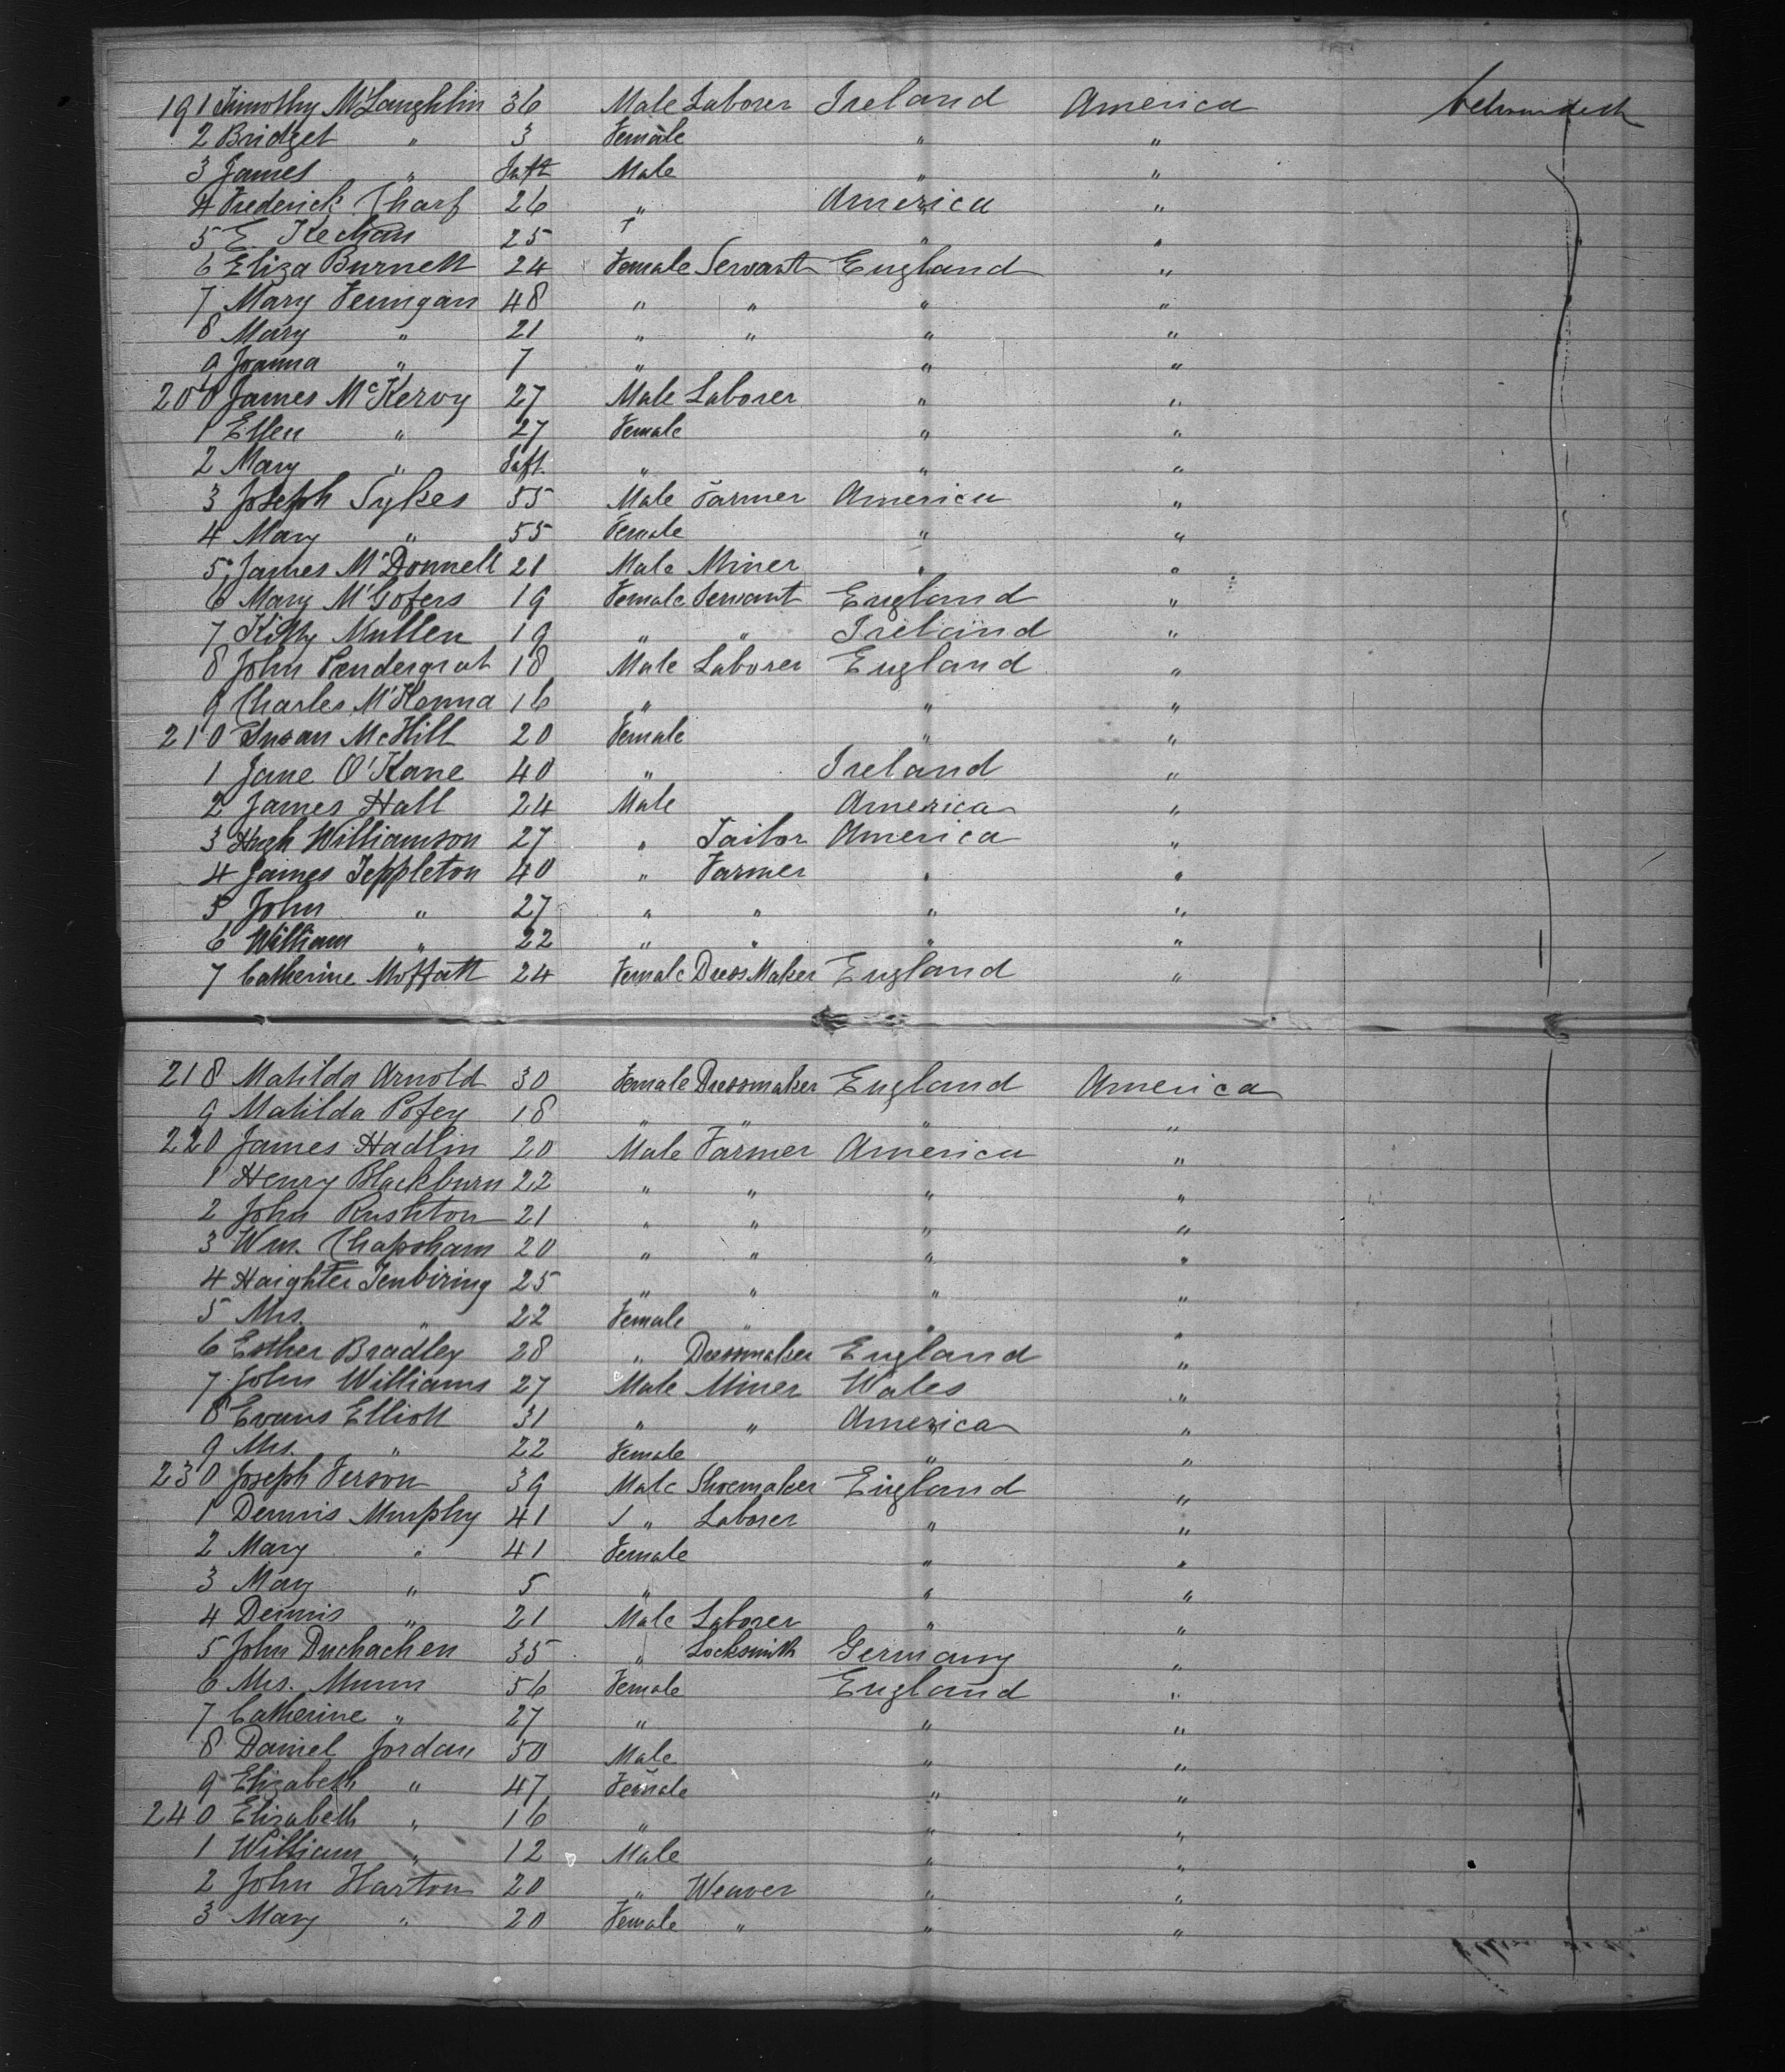 191 Timothy McLaughlin 36 Male Laborer Ireland America
2 Bridget " 3 Female " "
3 James " Inft Male " "
4 Frederick Tharf 26 " America "
5 E. Kechan 25 " " "
6 Eliza Burnett 24 Female Servant England "
7 Mary Fennigan 48 " " " "
8 Mary " 21 " " " "
9 Joanna " 7 " " "
200 James McKervy 27 Male Laborer " "
1 Ellen " 27 Female " "
2 Mary " Inft. " " "
3 Joseph Sykes 55 Male Farmer America "
4 Mary " 55 Female " "
5 James McDonnell 21 Male Miner " "
6 Mary McGofers 19 Female Servant England "
7 Kitty Mullen 19 " " Ireland "
8 John Pendergrat 18 Male Laborer England "
9 Charles McKenna 16 " " "
210 Susan McHill 20 Female " "
1 Jane O'Kane 40 " Ireland "
2 James Hall 24 Male America "
3 Hugh Williamson 27 " Tailor America "
4 James Teppleton 40 " Farmer " "
5 John " 27 " " " "
6 William " 22 " " " "
7 Catherine Moffatt 24 Female Dress Maker England "
218 Matilda Arnold 30 Female Dressmaker England America
9 Matilda Pofey 18 " " " "
220 James Hadlin 20 Male Farmer America "
1 Henry Blackburn 22 " " " "
2 John Rushton 21 " " " "
3 Wm. Chapsham 20 " " " "
4 Haighter Tenbiring 25 " " " "
5 Mrs. " 22 Female " " "
6 Esther Bradley 28 " Dressmaker England "
7 John Williams 27 Male Miner Wales "
8 Evans Elliott 31 " " America "
9 Mrs. " 22 Female " "
230 Joseph Ferson 39 Male Shoemaker England "
1 Dennis Murphy 41 " Laborer " "
2 Mary " 41 Female " "
3 Mary " 5 " " "
4 Dennis " 21 Male Laborer " "
5 John Duchachen 35 " Locksmith Germany "
6 Mrs. Munn 56 Female England "
7 Catherine " 27 " " "
8 Daniel Jordan 50 Male " "
9 Elizabeth " 47 Female " "
240 Elizabeth " 16 " " "
1 William " 12 Male " "
2 John Harton 20 " Weaver " "
3 Mary " 20 Female " " "